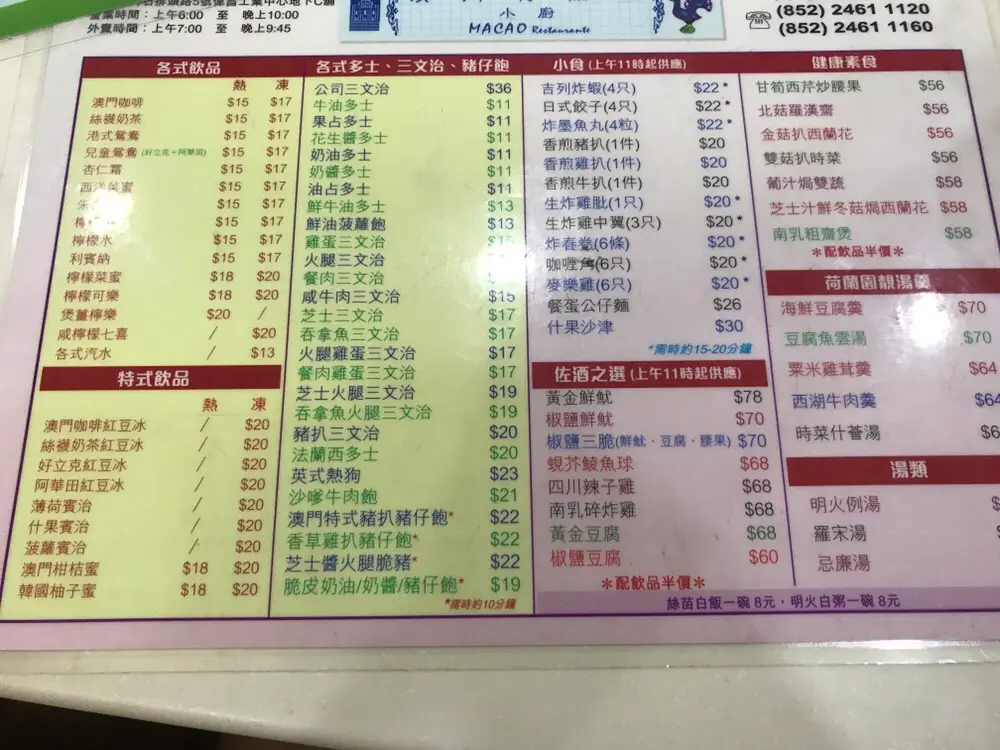 石排頭路5號偉昌工業中心地下C舖
營業時間：上午6:00 至 晚上10:00
外賣時間：上午7:00 至 晚上9:45
小廚
MACAO Restaurante
(852) 2461 1120
(852) 2461 1160
各式飲品
熱 凍
澳門咖啡 $15 $17
絲襪奶茶 $15 $17
港式鴛鴦 $15 $17
兒童鴛鴦 (好立克+阿華田) $15 $17
杏仁霜 $15 $17
西洋菜蜜 $15 $17
$15 $17
$15 $17
檸檬水 $15 $17
利賓納 $15 $17
檸檬菜蜜 $18 $20
檸檬可樂 $18 $20
煲薑檸樂 $20 /
咸檸檬七喜 / $20
各式汽水 / $13
特式飲品
熱 凍
澳門咖啡紅豆冰 / $20
絲襪奶茶紅豆冰 / $20
好立克紅豆冰 / $20
阿華田紅豆冰 / $20
薄荷賓治 / $20
什果賓治 / $20
菠蘿賓治 / $20
澳門柑桔蜜 $18 $20
韓國柚子蜜 $18 $20
各式多士、三文治、豬仔飽
公司三文治 $36
牛油多士 $11
果占多士 $11
花生醬多士 $11
奶油多士 $11
奶醬多士 $11
油占多士 $11
鮮牛油多士 $13
鮮油菠蘿飽 $13
雞蛋三文治 $15
火腿三文治
餐肉三文治
咸牛肉三文治 $15
芝士三文治 $17
吞拿魚三文治 $17
火腿雞蛋三文治 $17
餐肉雞蛋三文治 $17
芝士火腿三文治 $19
吞拿魚火腿三文治 $19
豬扒三文治 $20
法蘭西多士 $20
英式熱狗 $23
沙嗲牛肉飽 $21
澳門特式豬扒豬仔飽* $22
香草雞扒豬仔飽* $22
芝士醬火腿脆豬* $22
脆皮奶油/奶醬/豬仔飽* $19
*需時約10分鐘
小食 (上午11時起供應)
吉列炸蝦(4只) $22 *
日式餃子(4只) $22 *
炸墨魚丸(4粒) $22 *
香煎豬扒(1件) $20
香煎雞扒(1件) $20
香煎牛扒(1件) $20
生炸雞肶(1只) $20 *
生炸雞中翼(3只) $20 *
炸春卷(6條) $20 *
咖喱角(6只) $20 *
麥樂雞(6只) $20 *
餐蛋公仔麵 $26
什果沙津 $30
*需時約15-20分鐘
佐酒之選 (上午11時起供應)
黃金鮮魷 $78
椒鹽鮮魷 $70
椒鹽三脆(鮮魷﹑豆腐﹑腰果) $70
蜆芥鯪魚球 $68
四川辣子雞 $68
南乳碎炸雞 $68
黃金豆腐 $68
椒鹽豆腐 $60
*配飲品半價*
健康素食
甘筍西芹炒腰果 $56
北菇羅漢齋 $56
金菇扒西蘭花 $56
雙菇扒時菜 $56
葡汁焗雙蔬 $58
芝士汁鮮冬菇焗西蘭花 $58
南乳粗齋煲 $58
*配飲品半價*
荷蘭園靚湯羹
海鮮豆腐羹 $70
豆腐魚雲湯 $70
粟米雞茸羹 $64
西湖牛肉羹 $64
時菜什薈湯 $6
湯類
明火例湯 $
羅宋湯
忌廉湯
絲苗白飯一碗 8元，明火白粥一碗 8元